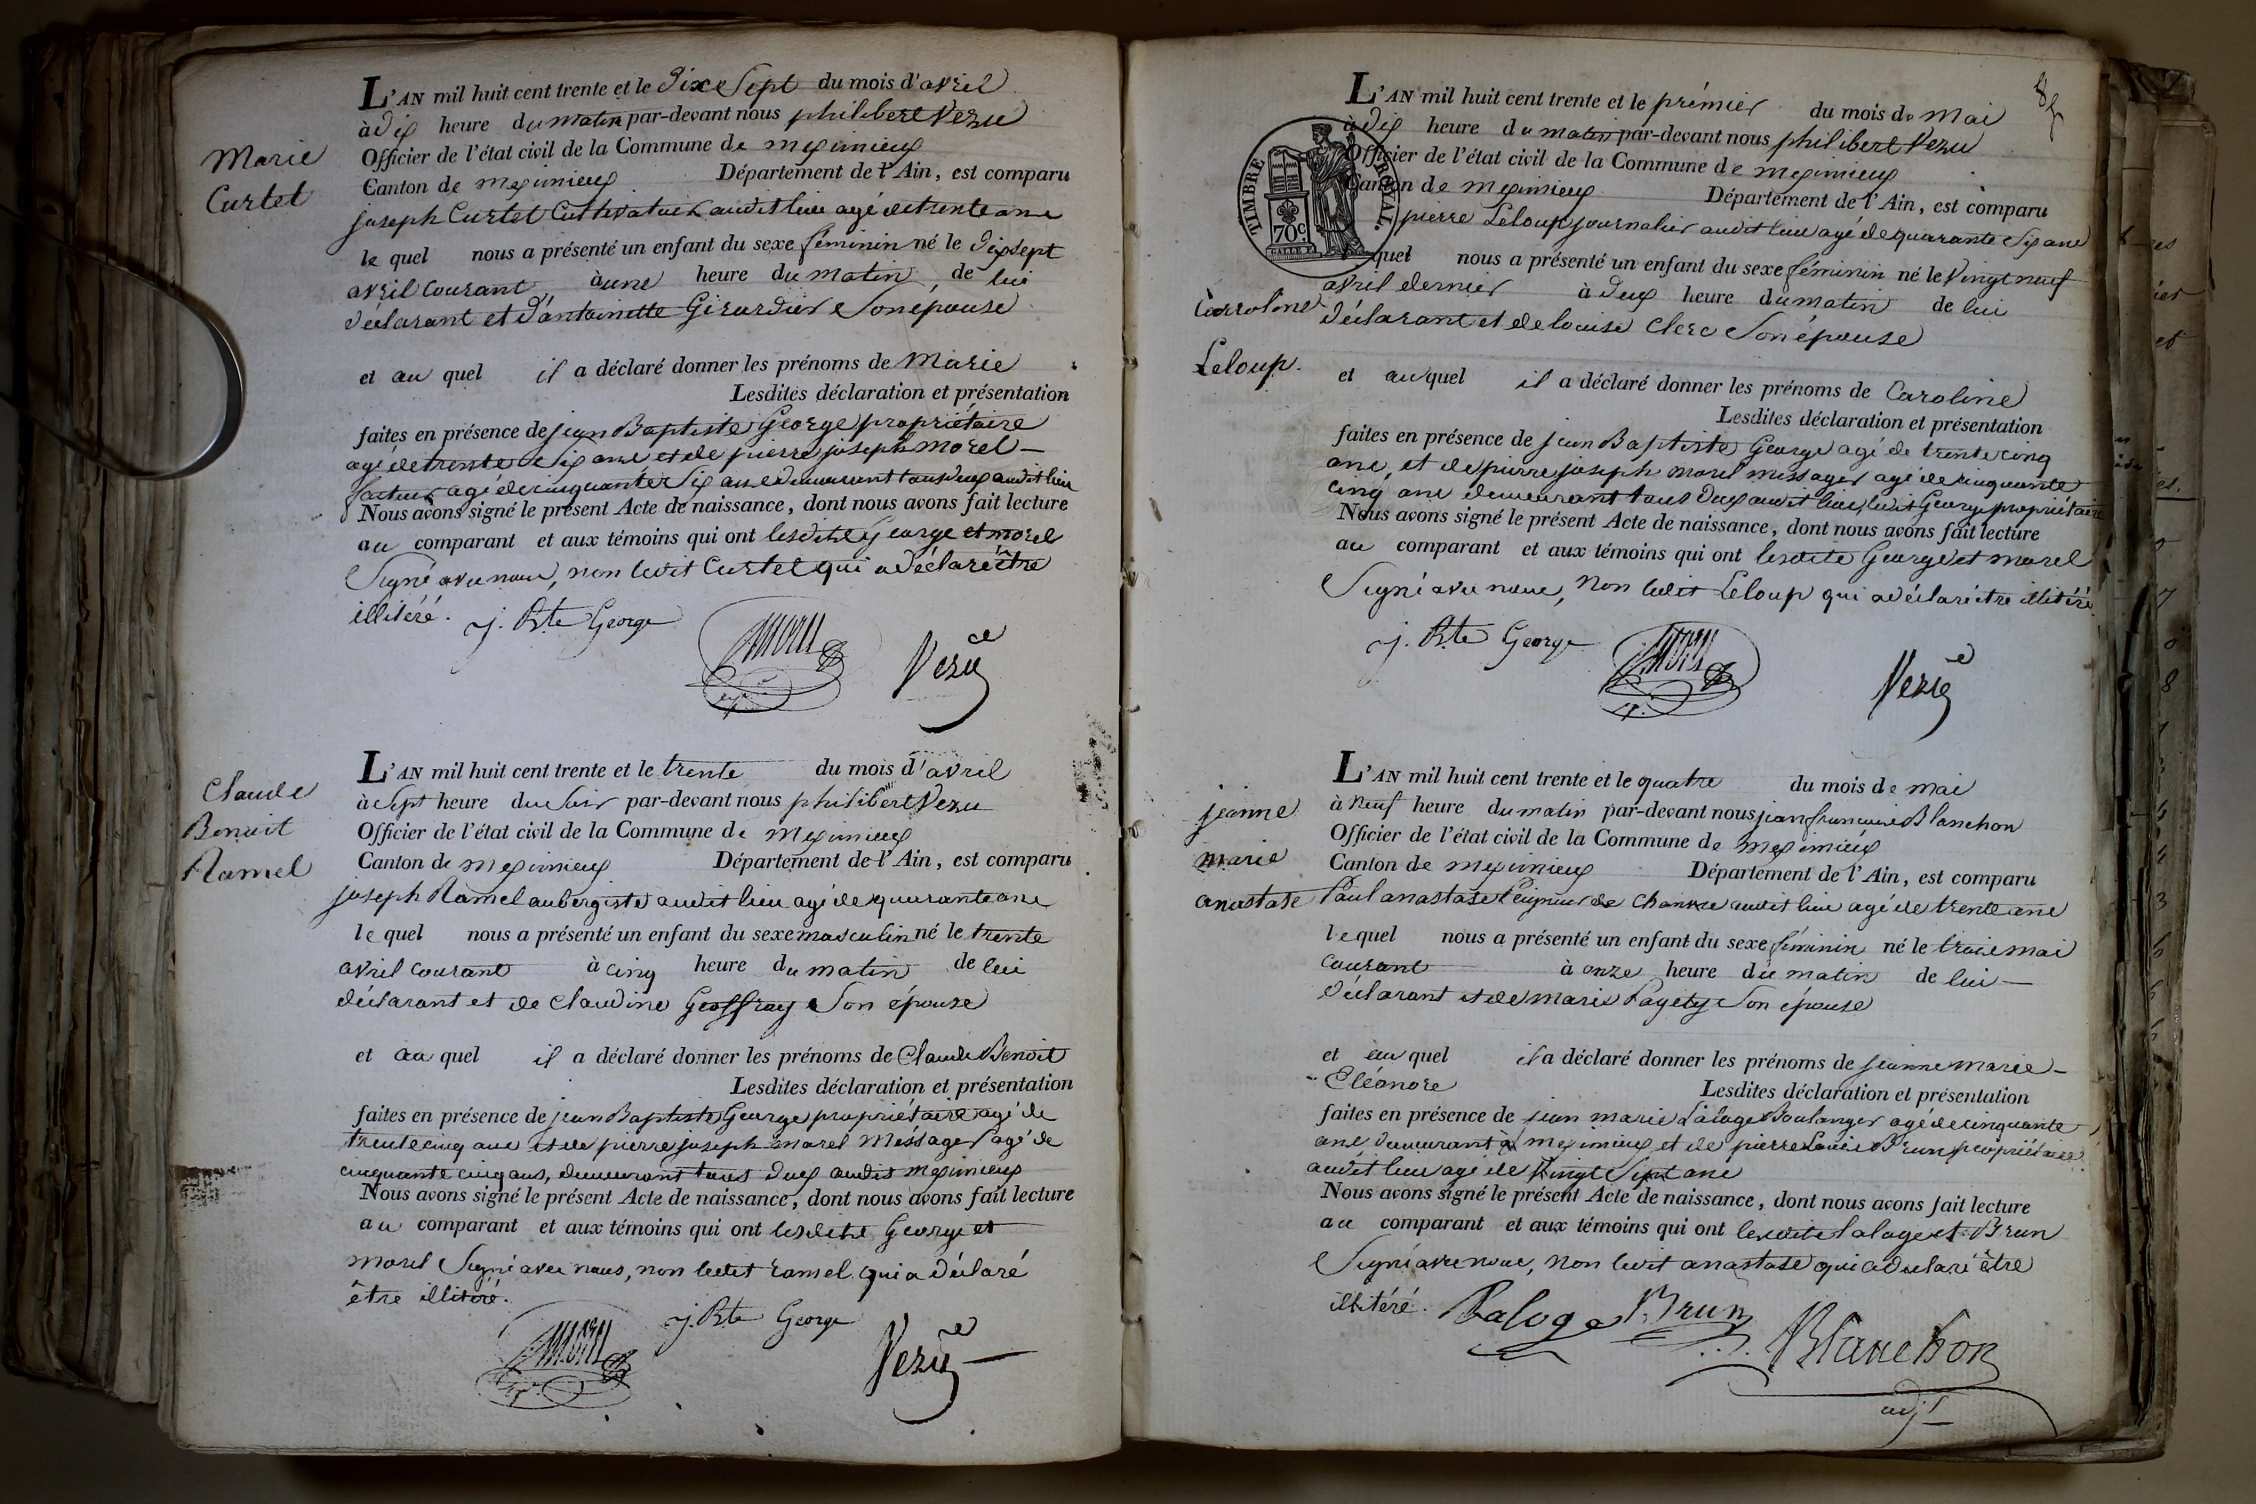 Marie
Curtet
L'AN mil huit cent trente et le dixe Sept du mois d'avril
à dix heure du matin par-devant nous philibert Vezu
Officier de l'état civil de la Commune de meximieux
Canton de meximieux Département de l'Ain, est comparu
joseph Curtet Cultivateur audit lieu agé de trente ans
le quel nous a présenté un enfant du sexe féminin né le dix sept
avril courant, à une heure du matin, de lui
déclarant et d'antoinette Girardier Son épouse
et au quel il a déclaré donner les prénoms de Marie
Lesdites déclaration et présentation
faites en présence de jean Baptiste George propriétaire
agé de trente Six ans et de pierre joseph morel
facteur agé de cinquante Six ans demeurant tous deux audit lieu
Nous avons signé le présent Acte de naissance, dont nous avons fait lecture
au comparant et aux témoins qui ont lesdits George et morel
Signé avec nous, non ledit Curtet qui a déclaré être
illitéré.
j. Bte George
Morel
Vezu
Claude
Benoit
Ramel
L'AN mil huit cent trente et le trente du mois d'avril
à Sept heure du Soir par-devant nous philibert Vezu
Officier de l'état civil de la Commune de meximieux
Canton de meximieux Département de l'Ain, est comparu
joseph Ramel aubergiste audit lieu agé de quarante ans
le quel nous a présenté un enfant du sexe masculin né le trente
avril courant à cinq heure du matin de lui
déclarant et de Claudine Geoffray Son épouse
et au quel il a déclaré donner les prénoms de Claude Benoit
Lesdites déclaration et présentation
faites en présence de jean Baptiste George propriétaire agé de
trente cinq ans et de pierre joseph morel Méssager agé de
cinquante cinq ans, demeurant tous deux audit meximieux
Nous avons signé le présent Acte de naissance, dont nous avons fait lecture
au comparant et aux témoins qui ont lesdits George et
morel Signé avec nous, non ledit ramel qui a déclaré
être illitéré.
Morel
j. Bte George
Vezu
8
TIMBRE ROYAL.
70c
L'AN mil huit cent trente et le prémier du mois de Mai
à dix heure du matin par-devant nous philibert Vezu
Officier de l'état civil de la Commune de meximieux
Canton de meximieux Département de l'Ain, est comparu
pierre Leloup journalier audit lieu agé de quarante Six ans
quel nous a présenté un enfant du sexe féminin né le Vingt neuf
avril dernier à deux heure du matin de lui
Carroline
déclarant et de louise Clerc Son épouse
Leloup.
et au quel il a déclaré donner les prénoms de Caroline
Lesdites déclaration et présentation
faites en présence de jean Baptiste George agé de trente cinq
ans, et de pierre joseph morel messager agé de cinquante
cinq ans demeurant tous deux audit lieu, ledit George propriétaire
Nous avons signé le présent Acte de naissance, dont nous avons fait lecture
au comparant et aux témoins qui ont lesdits George et morel
Signé avec nous, Non ledit Leloup qui a déclaré être illitéré.
j. Bte George
Morel
Vezu
jeanne
marie
anastase
L'AN mil huit cent trente et le quatre du mois de mai
à Neuf heure du matin par-devant nous jean francois Blanchon
Officier de l'état civil de la Commune de meximieux
Canton de meximieux Département de l'Ain, est comparu
Paul anastase Peigneur de Chanvre audit lieu agé de trente ans
le quel nous a présenté un enfant du sexe féminin né le trois mai
courant à onze heure du matin de lui
déclarant et de marie Pagety Son épouse
et au quel il a déclaré donner les prénoms de jeanne marie
Eléonore Lesdites déclaration et présentation
faites en présence de jean marie Laloge Boulanger agé de cinquante
ans demeurant à meximieux et de pierre Louis Brun propriétaire
audit lieu agé de Vingt Sept ans
Nous avons signé le présent Acte de naissance, dont nous avons fait lecture
au comparant et aux témoins qui ont lesdits laloge et Brun
Signé avec nous, non ledit anastase qui a déclaré être
illitéré.
Laloge
Brun
Blanchon
adjt